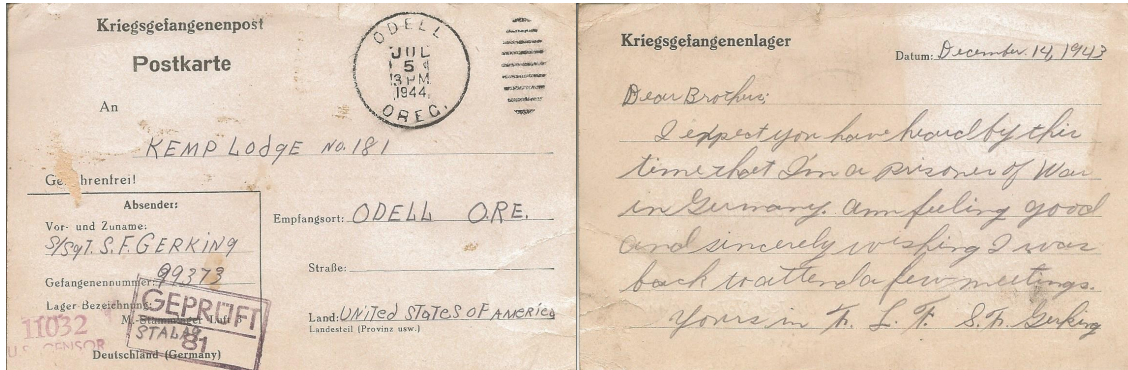 Kriegsgefangenenpost
Postkarte
ODELL
JUL
5
3 PM
1944
OREG.
An
KEMP Lodge No. 181
Gebührenfrei!
Absender:
Vor- und Zuname:
S/SgT. S. F. GERKING
Gefangenennummer: 99373
Lager-Bezeichnung:
M.-Stammlager Luft 3
STALAG
GEPRÜFT
81
11032
U.S. CENSOR
Deutschland (Germany)
Empfangsort: ODELL ORE.
Straße:
Land: UNITed STaTeS OF AMERICa
Landesteil (Provinz usw.)
Kriegsgefangenenlager
Datum: December. 14, 1943
Dear Brothers;
I expect you have heard by this
time that I'm a prisoner of War
in Germany. am feeling good
and sincerely wishing I was
back to attend a few meetings.
Yours in F. L. T. S. F. Gerking